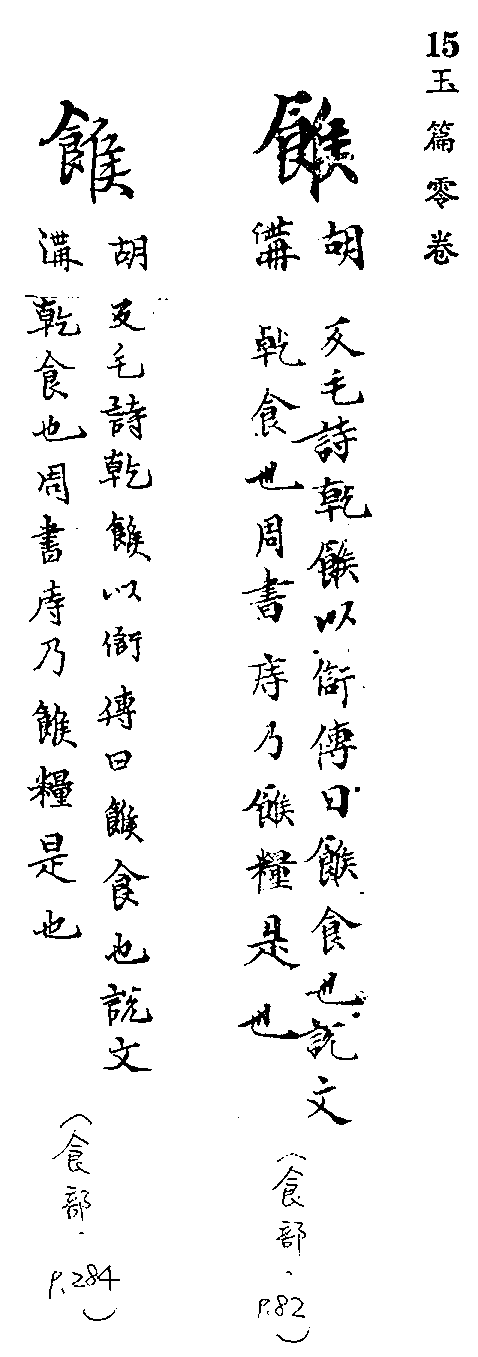 15玉篇零卷
餱
胡
反毛詩乾餱以衎傳曰餱食也說文
溝
乾食也周書庤乃餱糧是也
(食部.P.82)
餱
胡
反毛詩乾餱以衎傳曰餱食也說文
溝
乾食也周書庤乃餱糧是也
(食部.P.284)